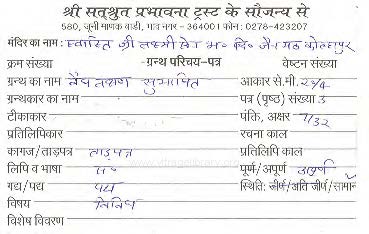 श्री सत्श्रुत प्रभावना ट्रस्ट के सौजन्य से
580, जूनी माणक वाडी, भाव नगर - 364001 फोन : 0278-423207
मंदिर का नाम : स्वस्ति श्री लक्ष्मी सेन भ० दि० जैन मठ कोल्हापुर
क्रम संख्या -ग्रन्थ परिचय-पत्र वेष्टन संख्या
ग्रन्थ का नाम सुभाषित आकार से.मी.
ग्रन्थकार का नाम पत्र (पृष्ठ) संख्या 3
टीकाकार पंक्ति, अक्षर 7/32
प्रतिलिपिकार रचना काल
कागज/ताड़पत्र ताड़पत्र प्रतिलिपि काल
लिपि व भाषा पूर्ण/अपूर्ण
गद्य/पद्य पद्य स्थिति: जीर्ण/अति जीर्ण/सामान्
विषय विविध
विशेष विवरण